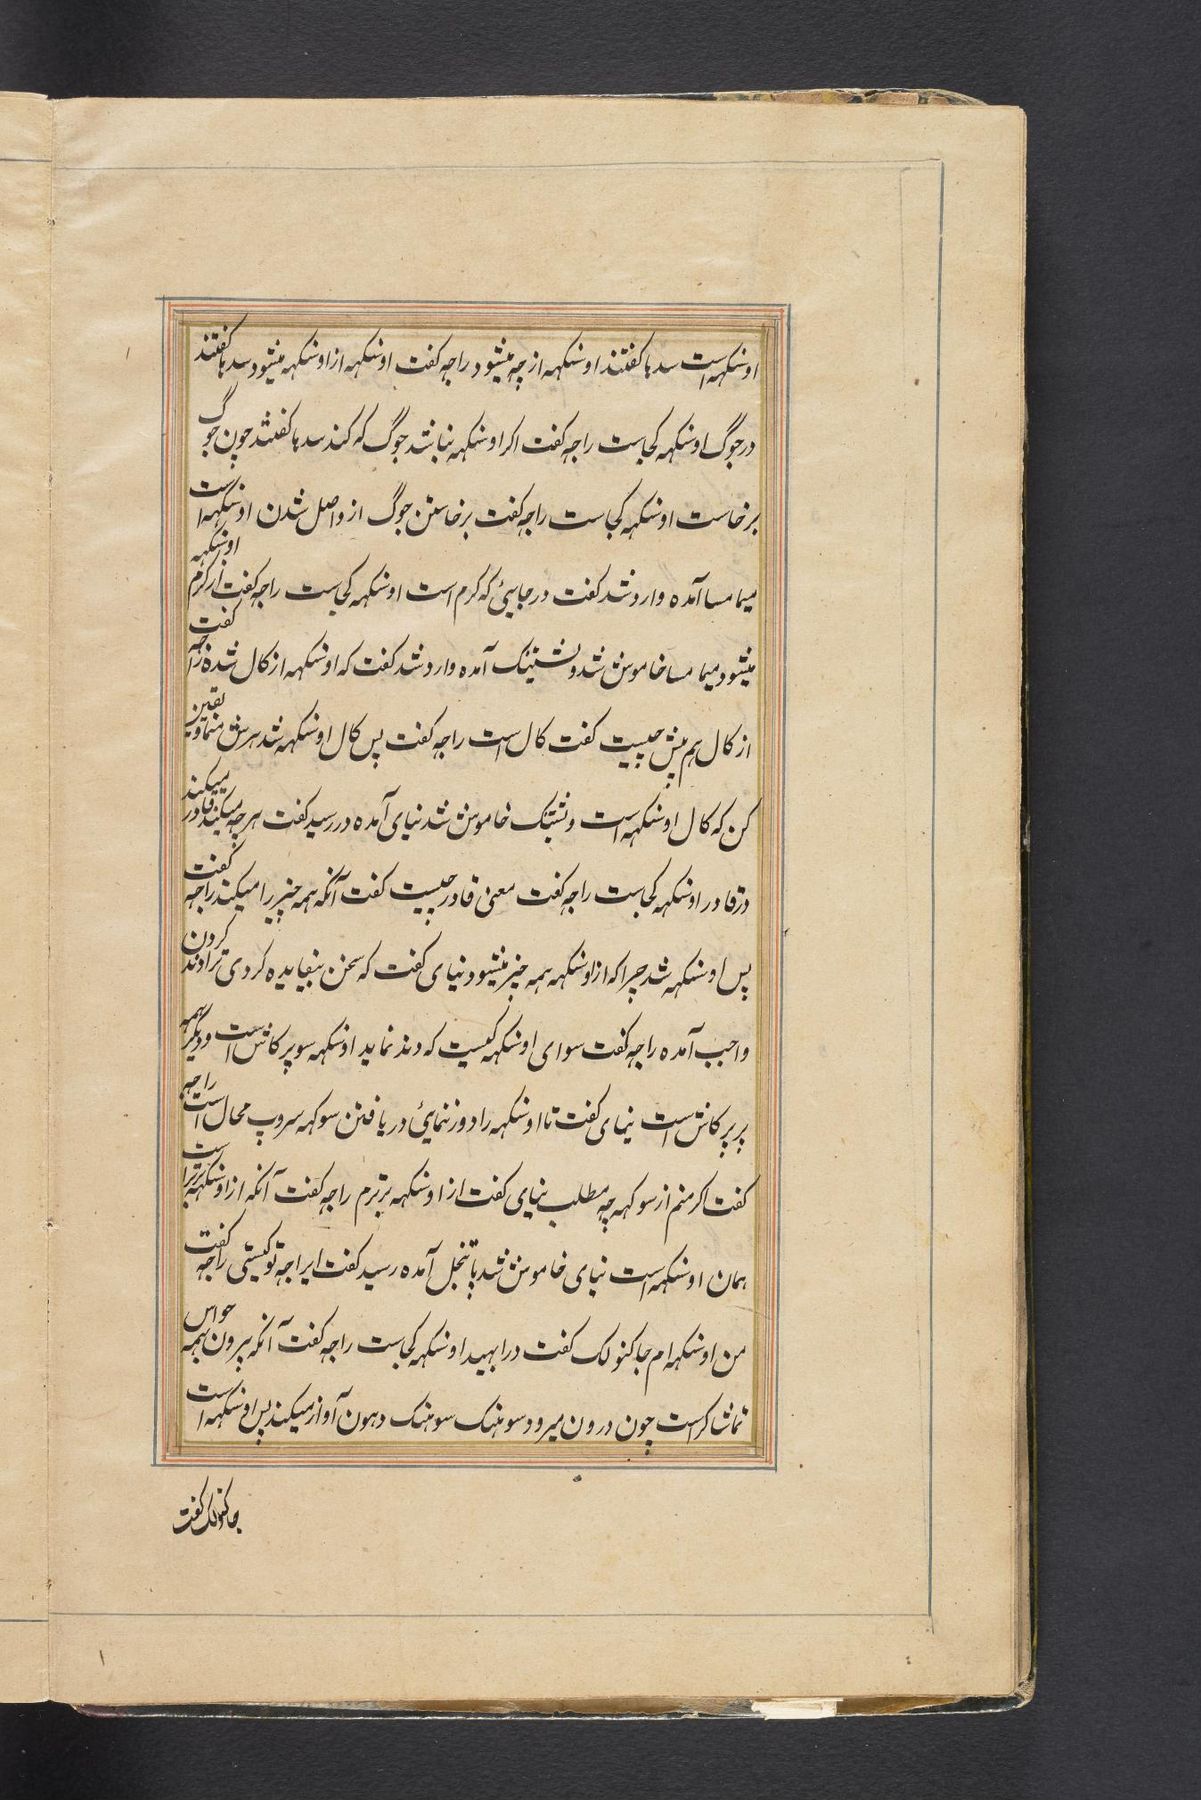 اوشکهه است سدها گفتند اوشکهه از چه میشود راجه گفت اوشکهه از اوشکهه میشود سدها گفتند
در جوگ اوشکهه کجاست راجه گفت اکر اوشکهه نباشد جوگ که کند سدها گفتند چون جوگ
برخاست اوشکهه کجاست راجه گفت برخاستن جوگ از واصل شدن اوشکهه است
میمامسا آمده وارد شد گفت در جایئ که کرم است اوشکهه کجاست راجه گفت از کرم اوشکهه
میشود میمامسا خاموش شد وشیشک آمده وارد شد گفت که اوشکهه از کال شده راجه گفت
از کال هم پیش چیست گفت کال است راجه گفت پس کال اوشکهه شد هرش منما و یقین
کن که کال اوشکهه است وشیشک خاموش شد نیای آمده در رسید گفت هر چه میکند قادر میکند
در قادر اوشکهه کجاست راجه گفت معنی قادر چیست گفت آنکه همه چیز را میکند راجه گفت
پس اوشکهه شد چرا که از اوشکهه همه چیز میشود نیای گفت که سخن بیفایده کردی ترا دند کردن
واجب آمده راجه گفت سوای اوشکهه کیست که دند نماید اوشکهه سوپرکاش است و دیگر همه
پرپرکاش است نیای گفت تا اوشکهه را دور ننمایئ دریافتن سوکهه سروپ محال است راجه
گفت اکر منم از سوکهه چه مطلب نیای گفت از اوشکهه برترم راجه گفت آنکه از اوشکهه برتر است
همان اوشکهه است نیای خاموش شد پاتنجل آمده رسید گفت ای راجه تو کیستی راجه گفت
من اوشکهه ام جاکنولک گفت در ابهید اوشکهه کجاست راجه گفت آنکه بیرون همه حواس
تماشاگر است چون درون میرود سوهنک سوهنک دهون آواز میکند پس اوشکهه است
جاکنولک گفت